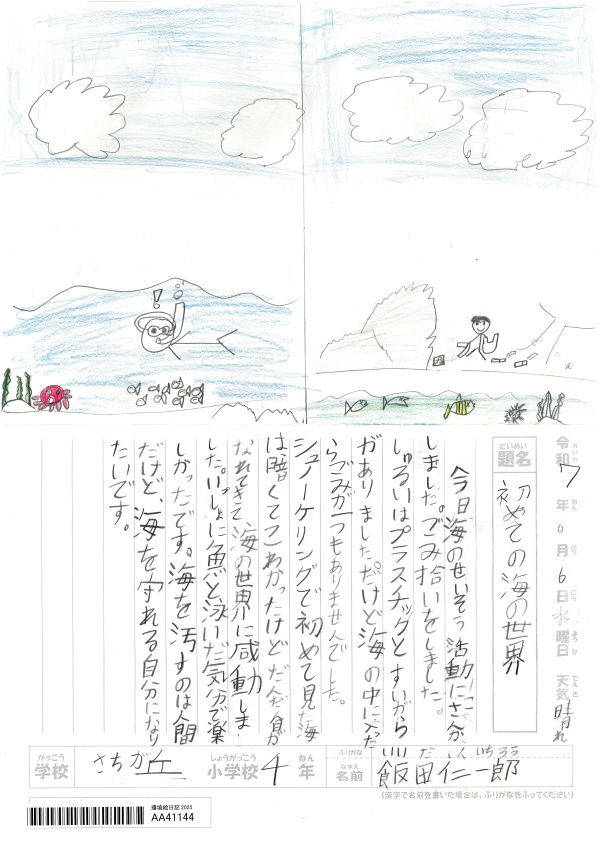 令和7年 月6日水曜日 天気 晴れ
れいわ ねん がつ にち ようび てんき
だいめい
題名 初めての海の世界
今日海のせいそう活動にさんか
しました。ごみ拾いをしました。
しゅるいはプラスチックとすいがら
がありました。だけど海の中に入った
らごみが一つもありませんでした。
シュノーケリングで初めて見た海
は暗くてこわかったけどだんだん目が
なれてきて海の世界に感動しま
した。いっしょに魚と泳いだ気分で楽
しかったです。海を汚すのは人間
だけど、海を守れる自分になり
たいです。
がっこう しょうがっこう ねん
学校 さちが丘 小学校 4 年
ふりがな いいだ じんいちろう
なまえ
名前 飯田 仁一郎
(漢字で名前を書いた場合は、ふりがなをふってください)
環境絵日記 2025
AA41144